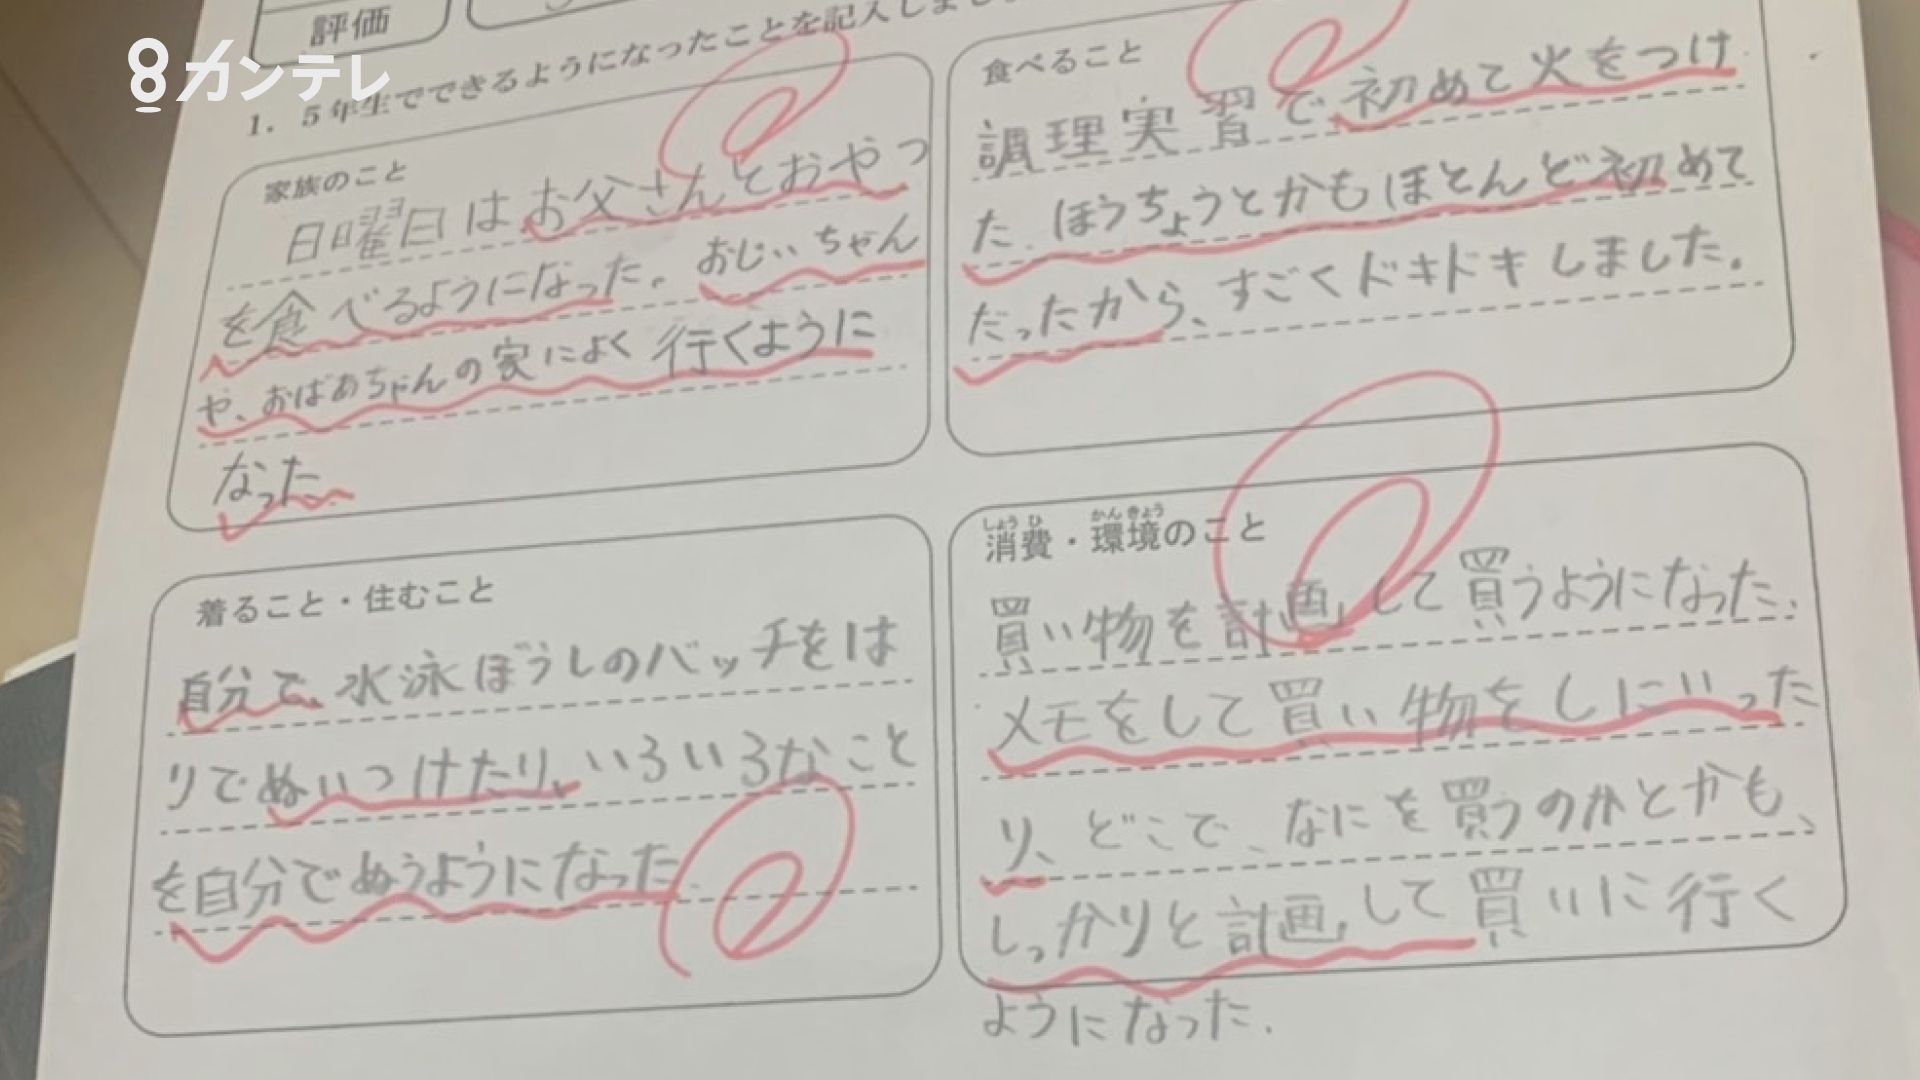 評価
8カンテレ
1. 5年生でできるようになったことを記入しまし
家族のこと
日曜日はお父さんとおやつ
を食べるようになった。おじいちゃん
や、おばあちゃんの家によく行くように
なった
食べること
調理実習で初めて火をつけ
た。ほうちょうとかもほとんど初めて
だったから、すごくドキドキしました。
着ること・住むこと
自分で、水泳ぼうしのバッチをは
りでぬいつけたり、いろいろなこと
を自分でぬうようになった。
しょう ひ かん きょう
消費・環境のこと
買い物を計画して買うようになった。
メモをして買い物をしにいった
り、どこで、なにを買うのかとかも、
しっかりと計画して買いに行く
ようになった。